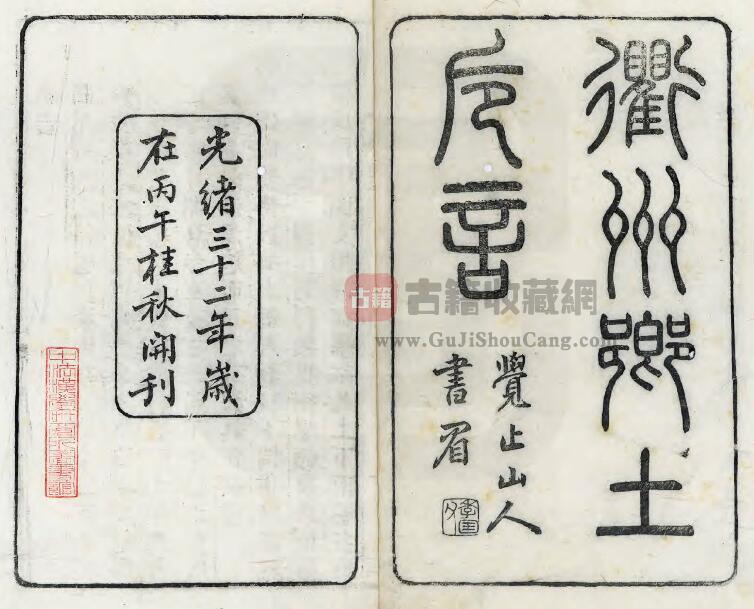 衢州鄉土
卮言
覺止山人
書眉
光緒三十二年歲
在丙午桂秋開刊
古籍
古籍收藏網
www.GuJiShouCang.com